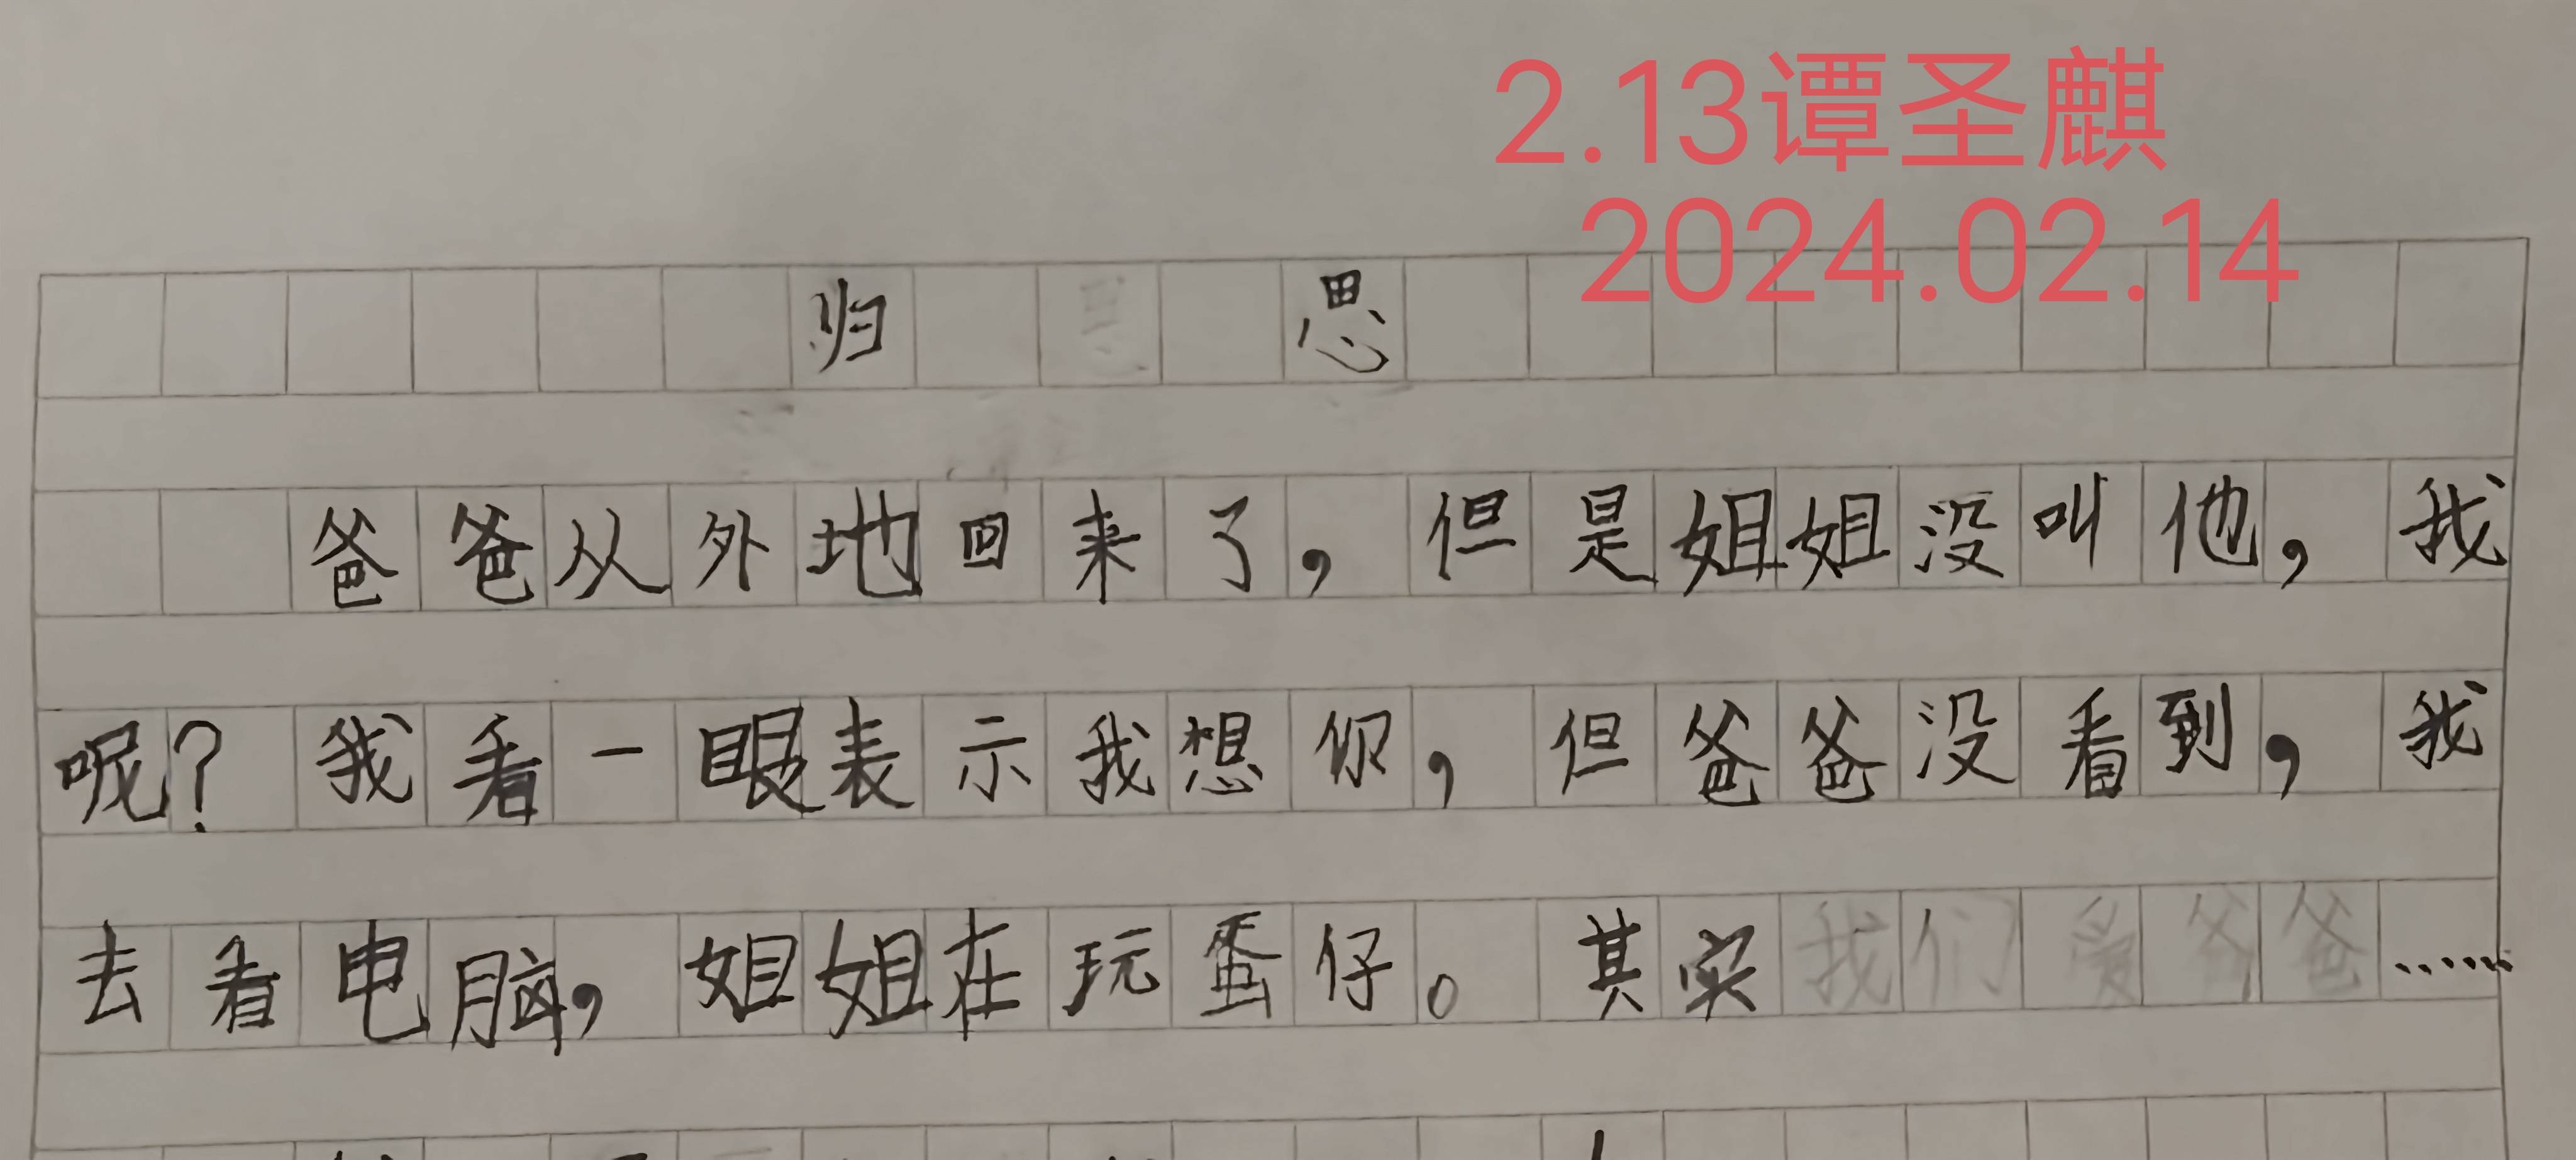 2.13谭圣麒
2024.02.14
归 思
爸爸从外地回来了，但是姐姐没叫他，我
呢？我看一眼表示我想你，但爸爸没看到，我
去看电脑，姐姐在玩蛋仔。其实我们爱爸爸……